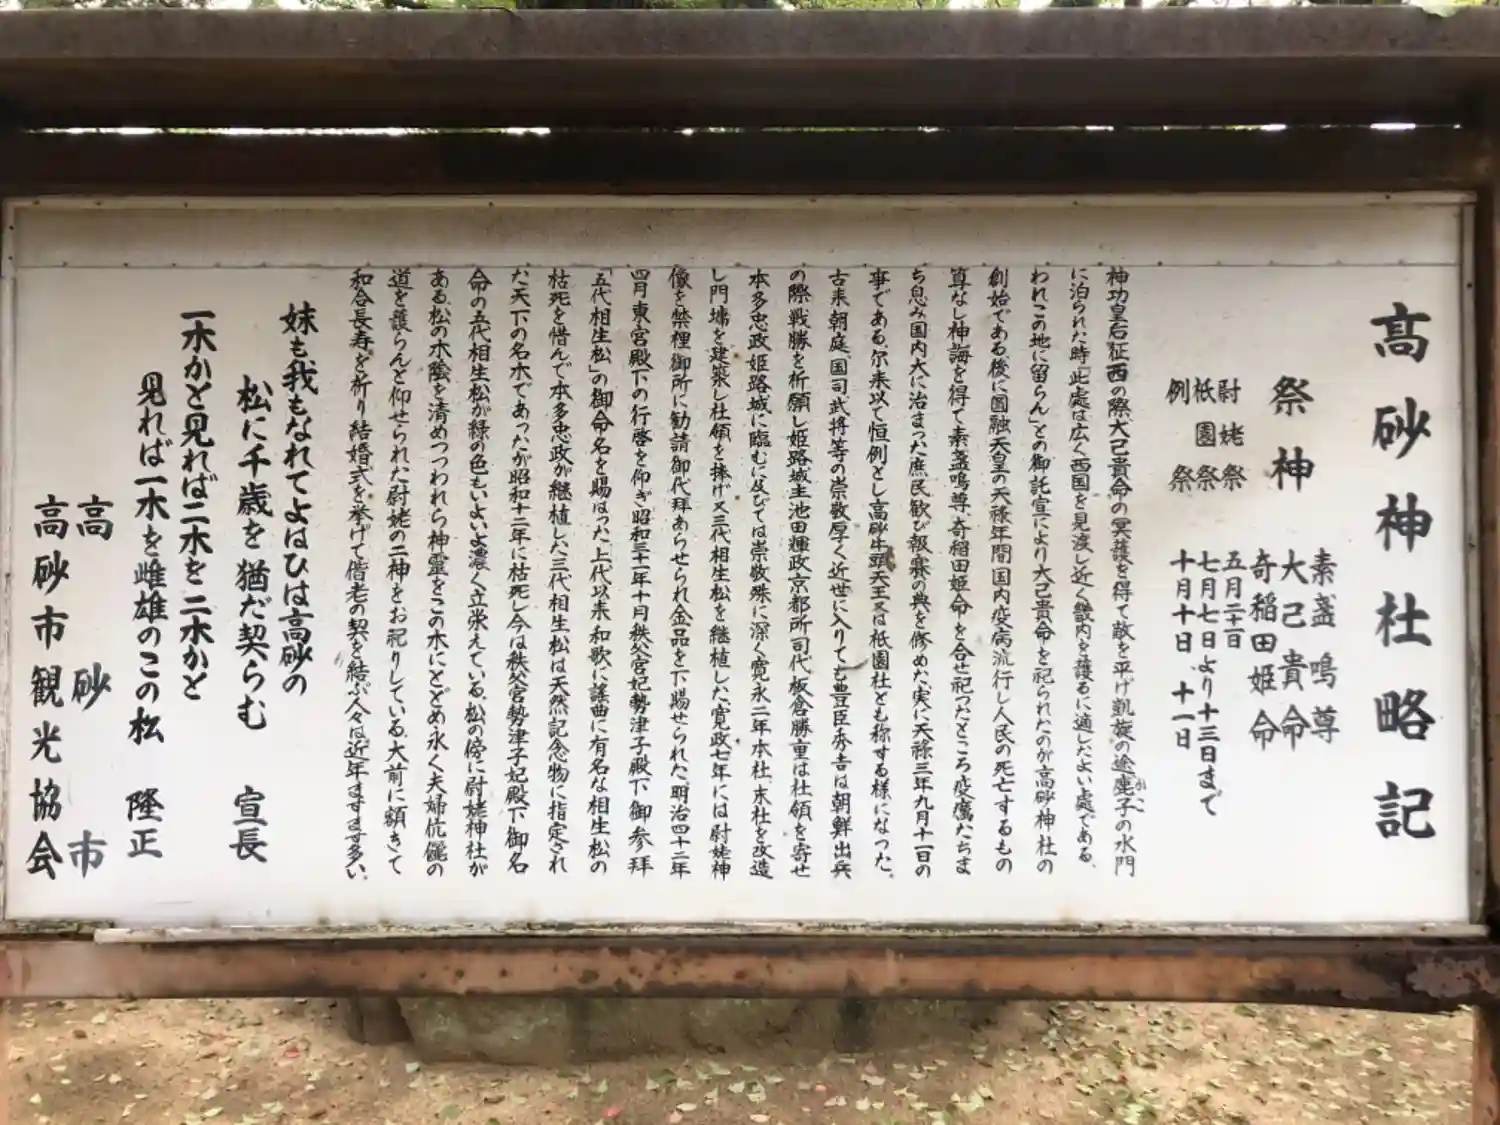 高砂神社略記
祭神
素盞嗚尊
大己貴命
奇稲田姫命
尉姥祭 五月二十一日
祇園祭 七月七日より十三日まで
例祭 十月十日、十一日
神功皇后征西の際大己貴命の冥護を得て敵を平げ凱旋の途鹿子の水門
かこ
に泊られた時「此處は広く西国を見渡し近く畿内を護るに適したよい處である、
われこの地に留らん」との御託宣により大己貴命を祀られたのが高砂神社の
創始である。後に圓融天皇の天祿年間国内疫病流行し人民の死亡するもの
算なし神誨を得て素盞鳴尊、奇稲田姫命を合せ祀ったところ疫癘たちま
ち息み国内大に治まった庶民歓び報賽の典を修めた、実に天祿三年九月十一日の
事である、尓来以て恒例とし高砂牛頭天王又は祇園社とも称する様になった。
古来朝庭、国司武将等の崇敬厚く近世に入りても豊臣秀吉は朝鮮出兵
の際戦勝を祈願し姫路城主池田輝政京都所司代板倉勝重は社領を寄せ
本多忠政姫路城に臨むに及びては崇敬殊に深く寛永二年本社、末社を改造
し門塀を建築し社領を捧げ又三代相生松を継植した、寛政七年には尉姥神
像を禁裡御所に勧請御代拝あらせられ金品を下賜せられた、明治四十二年
四月東宮殿下の行啓を仰ぎ昭和三十一年十月秩父宮妃勢津子殿下御参拜
「五代相生松」の御命名を賜はった、上代以来和歌に謡曲に有名な相生松の
枯死を惜んで本多忠政が継植した三代相生松は天然記念物に指定され
た天下の名木であったが昭和十二年に枯死し今は秩父宮勢津子妃殿下御名
命の五代相生松が緑の色もいよいよ濃く立栄えている、松の傍に尉姥神社が
ある、松の木陰を清めつつわれら神霊をこの木にとどめ永く夫婦伉儷の
道を護らんと仰せられた尉姥の二神をお祀りしている、大前に額きて
和合長寿を祈り結婚式を挙げて偕老の契を結ぶ人々は近年ますます多い。
妹も我もなれてよはひは高砂の
松に千歳を猶だ契らむ 宣長
一木かと見れば二木を二木かと
見れば一木を雌雄のこの松 隆正
高砂市
高砂市観光協会